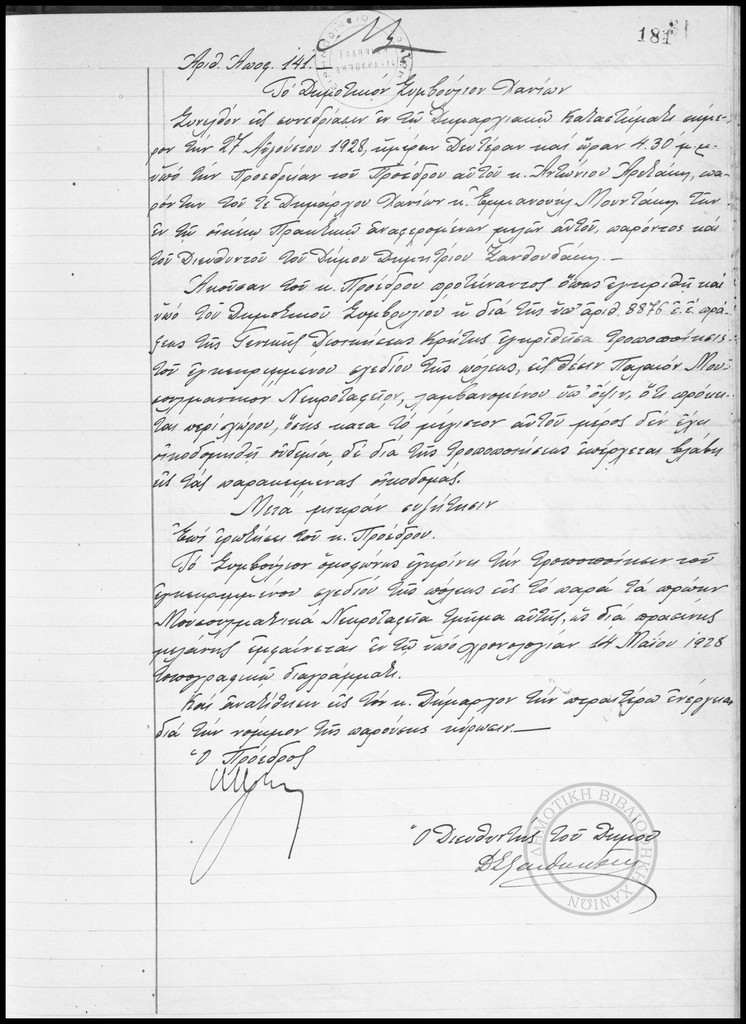 181
Ἀριθ. Ἀποφ. 141.
Τό Δημοτικόν Συμβούλιον Χανίων
Συνελθόν εἰς συνεδρίασιν ἐν τῷ Δημαρχιακῷ Καταστήματι σήμε-
ρον τήν 27 Αὐγούστου 1928, ἡμέραν Δευτέραν καί ὥραν 4.30 μ.μ.
ὑπό τήν Προεδρείαν τοῦ Προέδρου αὐτοῦ κ. Ἀντωνίου πα-
ρόντων τοῦ τε Δημάρχου Χανίων κ. Ἐμμανουήλ Μουντάκη, τῶν
ἐν τῷ οἰκείῳ Πρακτικῷ ἀναφερομένων μελῶν αὐτοῦ, παρόντος καί
τοῦ Διευθυντοῦ τοῦ Δήμου Δημητρίου Ξανθουδάκη.—
Ἀκοῦσαν τοῦ κ. Προέδρου προτείναντος ὅπως ἐγκριθῇ καί
ὑπό τοῦ Δημοτικοῦ Συμβουλίου ἡ διά τῆς ὑπ' ἀριθ. 8876 ἐ.ἔ. πρά-
ξεως τῆς Γενικῆς Διοικήσεως Κρήτης ἐγκριθεῖσα τροποποίησις
τοῦ ἐγκεκριμμένου σχεδίου τῆς πόλεως, εἰς θέσιν Παλαιόν Μου-
σουλμανικόν Νεκροταφεῖον, λαμβανομένου ὑπ' ὄψιν, ὅτι πρόκει-
ται περί χώρου, ὅστις κατά τό μέγιστον αὐτοῦ μέρος δέν ἔχει
οἰκοδομηθῆ οὐδεμία δέ διά τῆς τροποποιήσεως ἐπέρχεται βλάβη
εἰς τάς παρακειμένας οἰκοδομάς.
Μετά μικράν συζήτησιν
Ἐπί ἐρωτήσει τοῦ κ. Προέδρου.
Τό Συμβούλιον ὁμοφώνως ἐγκρίνει τήν τροποποίησιν τοῦ
ἐγκεκριμμένου σχεδίου τῆς πόλεως εἰς τό παρά τά πρώην
Μουσουλμανικά Νεκροταφεῖα τμῆμα αὐτῆς, ὡς διά πρασίνης
μελάνης ἐμφαίνεται ἐν τῷ ὑπό χρονολογίαν 14 Μαΐου 1928
τοπογραφικῷ διαγράμματι.
Καί ἀνατίθησιν εἰς τόν κ. Δήμαρχον τήν περαιτέρω ἐνέργειαν
διά τήν νόμιμον τῆς παρούσης κύρωσιν.—
Ὁ Πρόεδρος
Ὁ Διευθυντής τοῦ Δήμου
ΔΗΜΟΤΙΚΗ ΒΙΒΛΙΟΘΗΚΗ ΧΑΝΙΩΝ